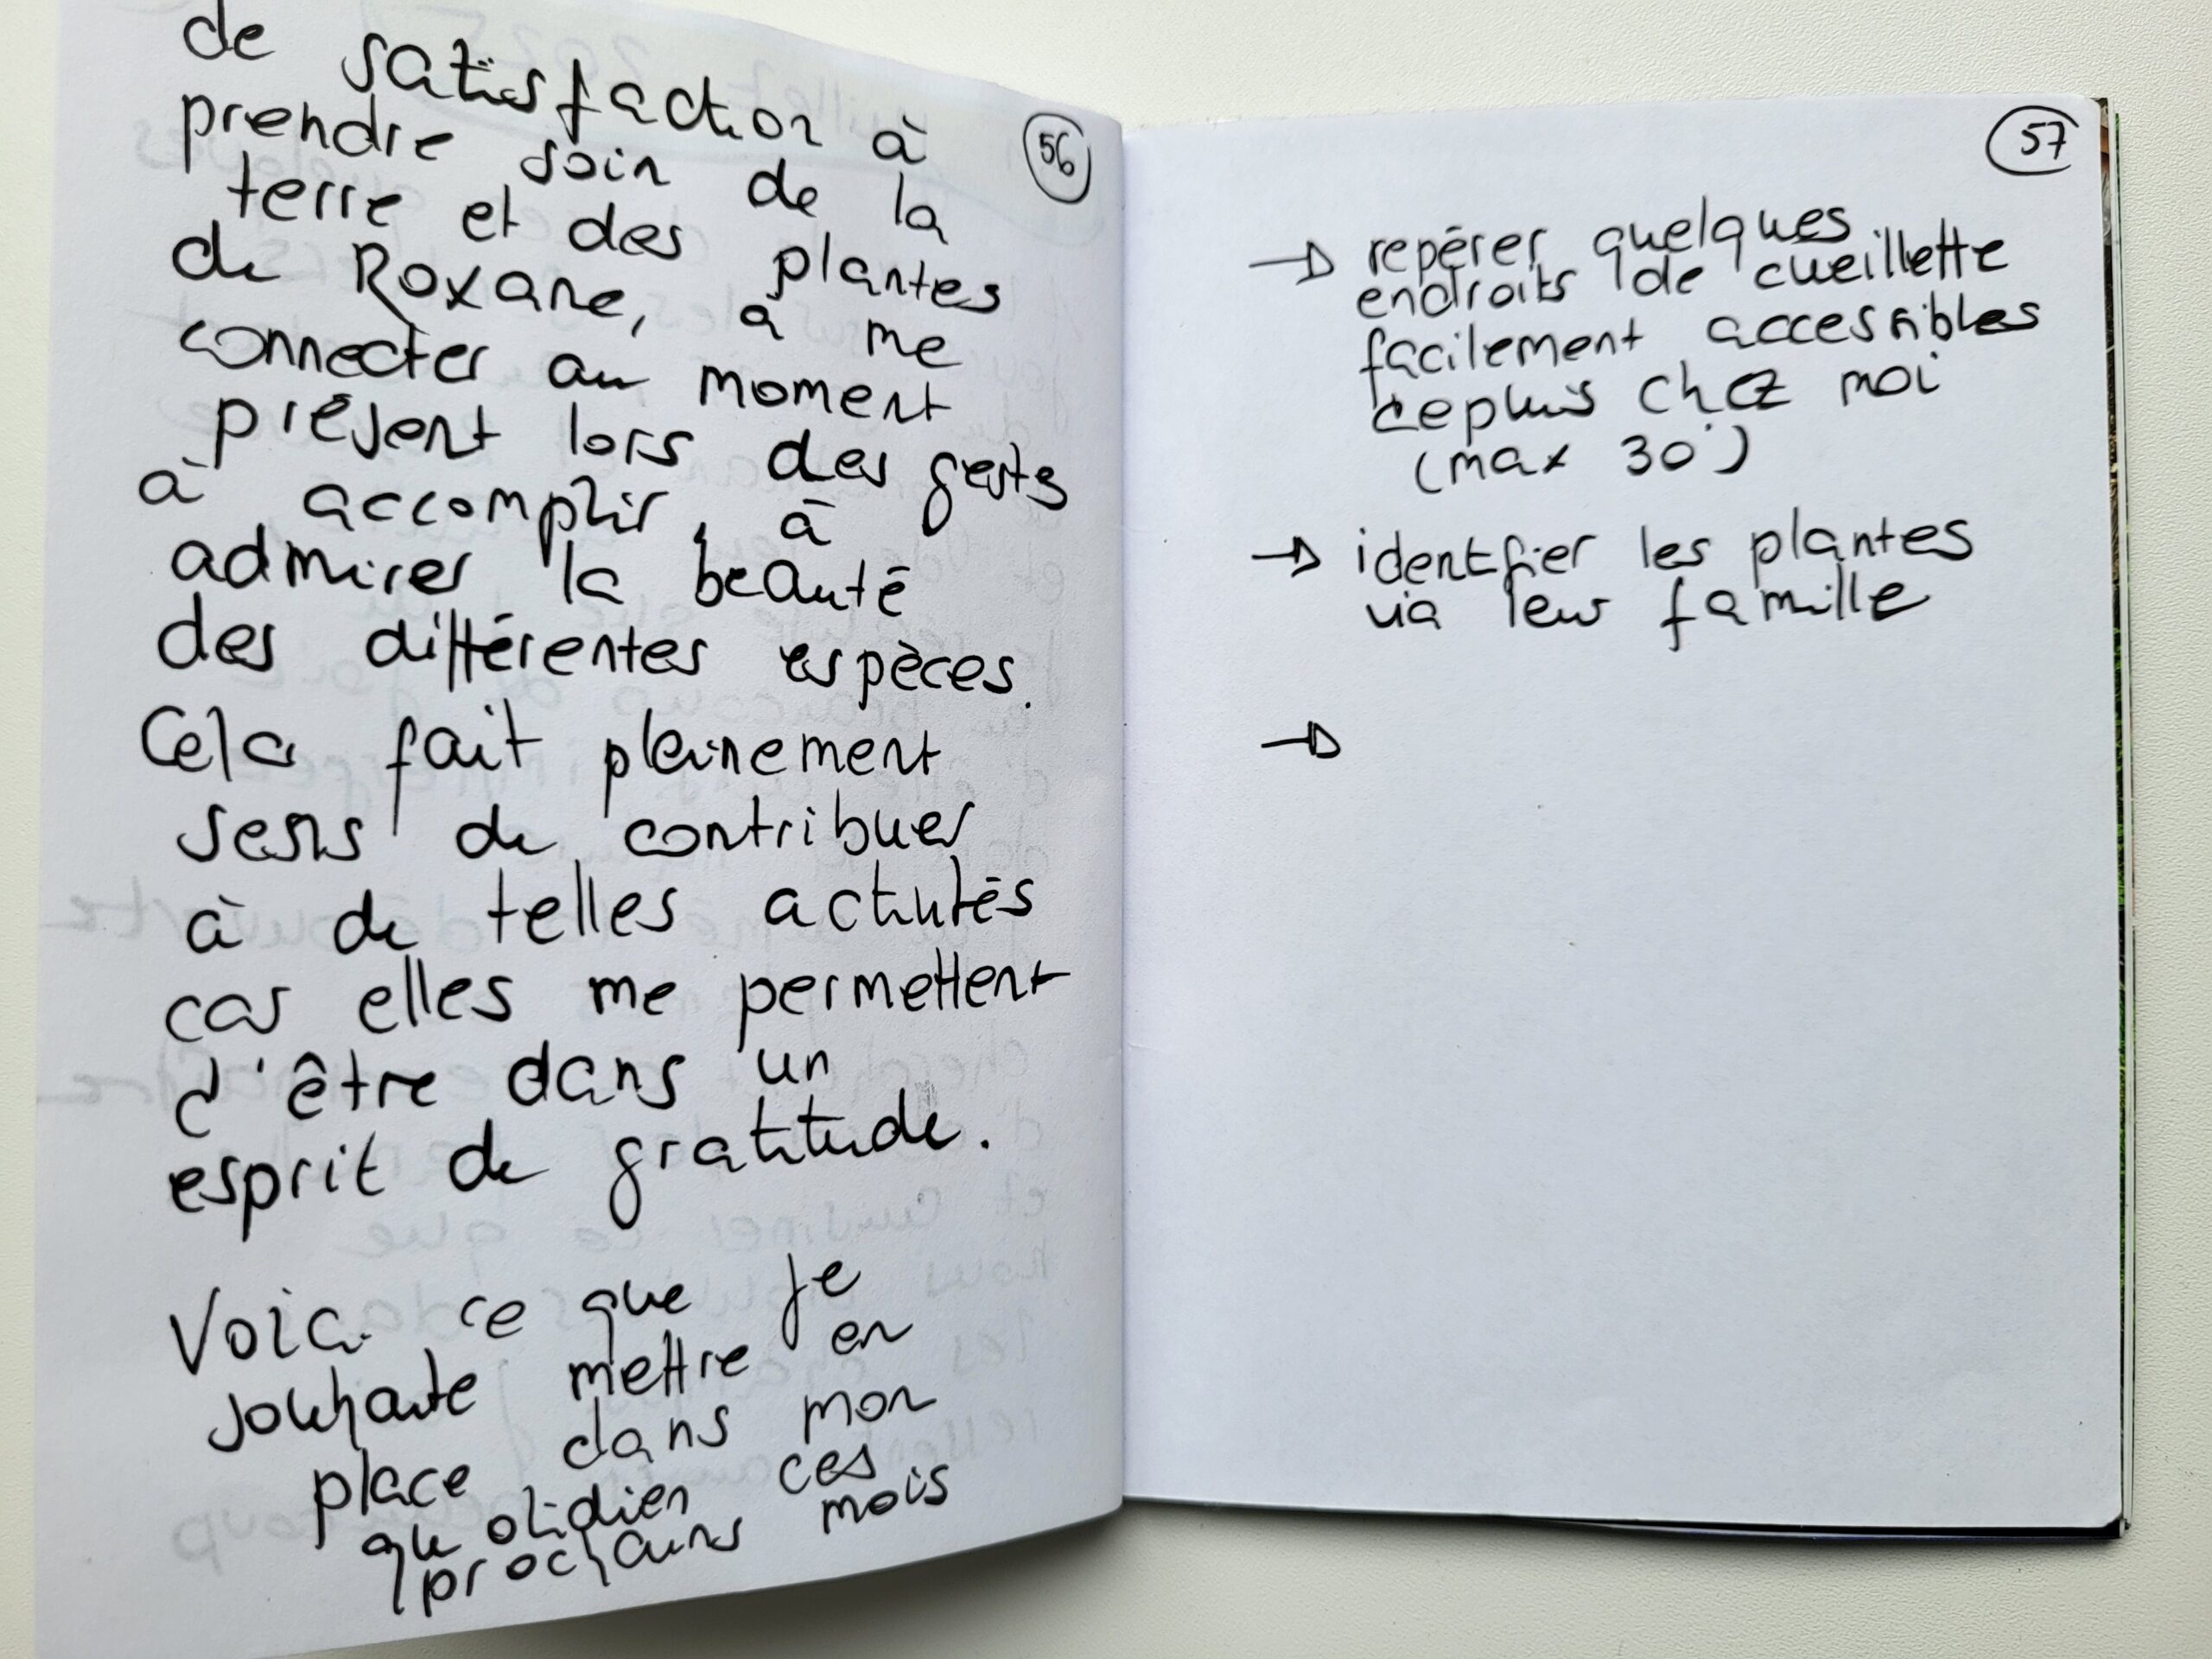 de satisfaction à
prendre soin de la
terre et des plantes
de Roxane, à me
connecter au moment
présent lors des gestes
à accomplir, à
admirer la beauté
des différentes espèces.
Cela fait pleinement
sens de contribuer
à de telles activités
car elles me permettent
d'être dans un
esprit de gratitude.
Voici ce que je
souhaite mettre en
place dans mon
quotidien ces
prochains mois
56
57
→ repérer quelques
endroits de cueillette
facilement accessibles
depuis chez moi
(max 30')
→ identifier les plantes
via leur famille
→